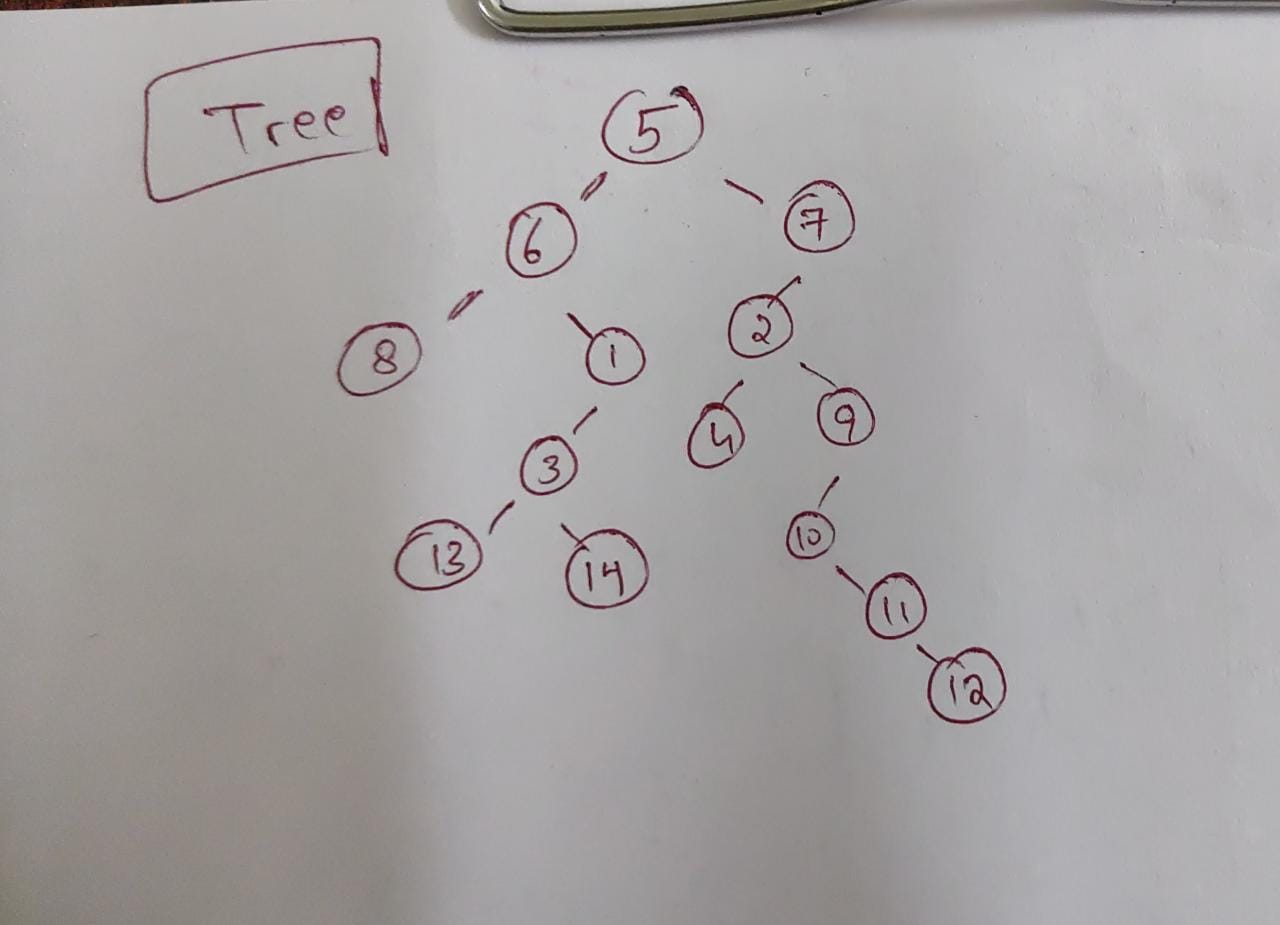 Tree
5
6 7
8 1 2
3 4 9
13 14 10
11
12